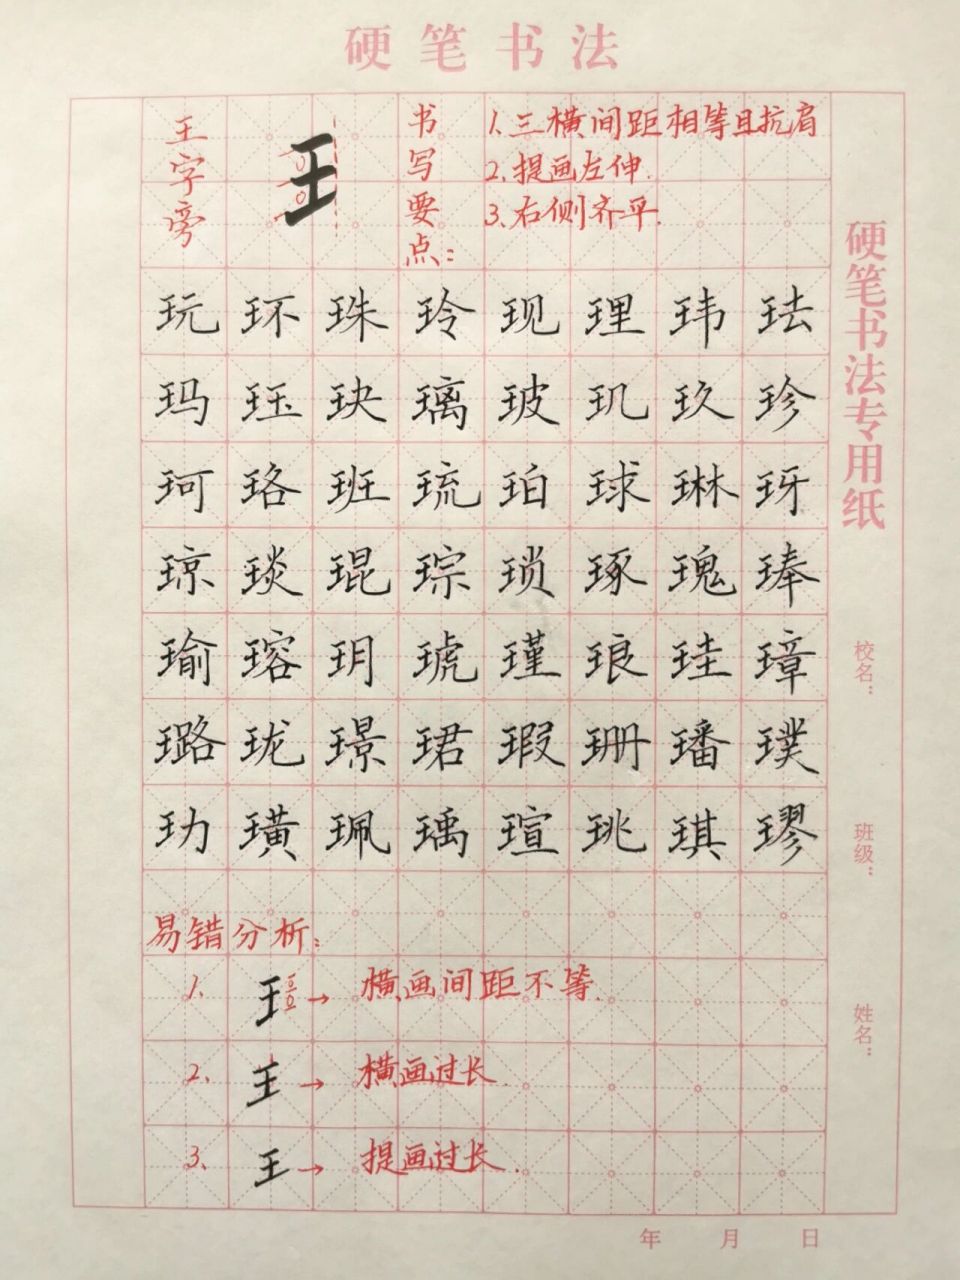 硬笔书法
王字旁
王
书写要点：
1.三横间距相等且抗肩
2.提画左伸.
3.右侧齐平.
玩环珠玲现理玮珐
玛珏玦璃玻玑玖珍
珂珞班琉珀球琳玡
琼琰琨琮琐琢瑰琫
瑜瑢玥琥瑾琅珪璋
璐珑璟珺瑕珊璠璞
玏璜珮瑀瑄珧琪璆
易错分析：
1、王→横画间距不等.
2、王→横画过长
3、王→提画过长.
硬笔书法专用纸
校名：
班级：
姓名：
年 月 日